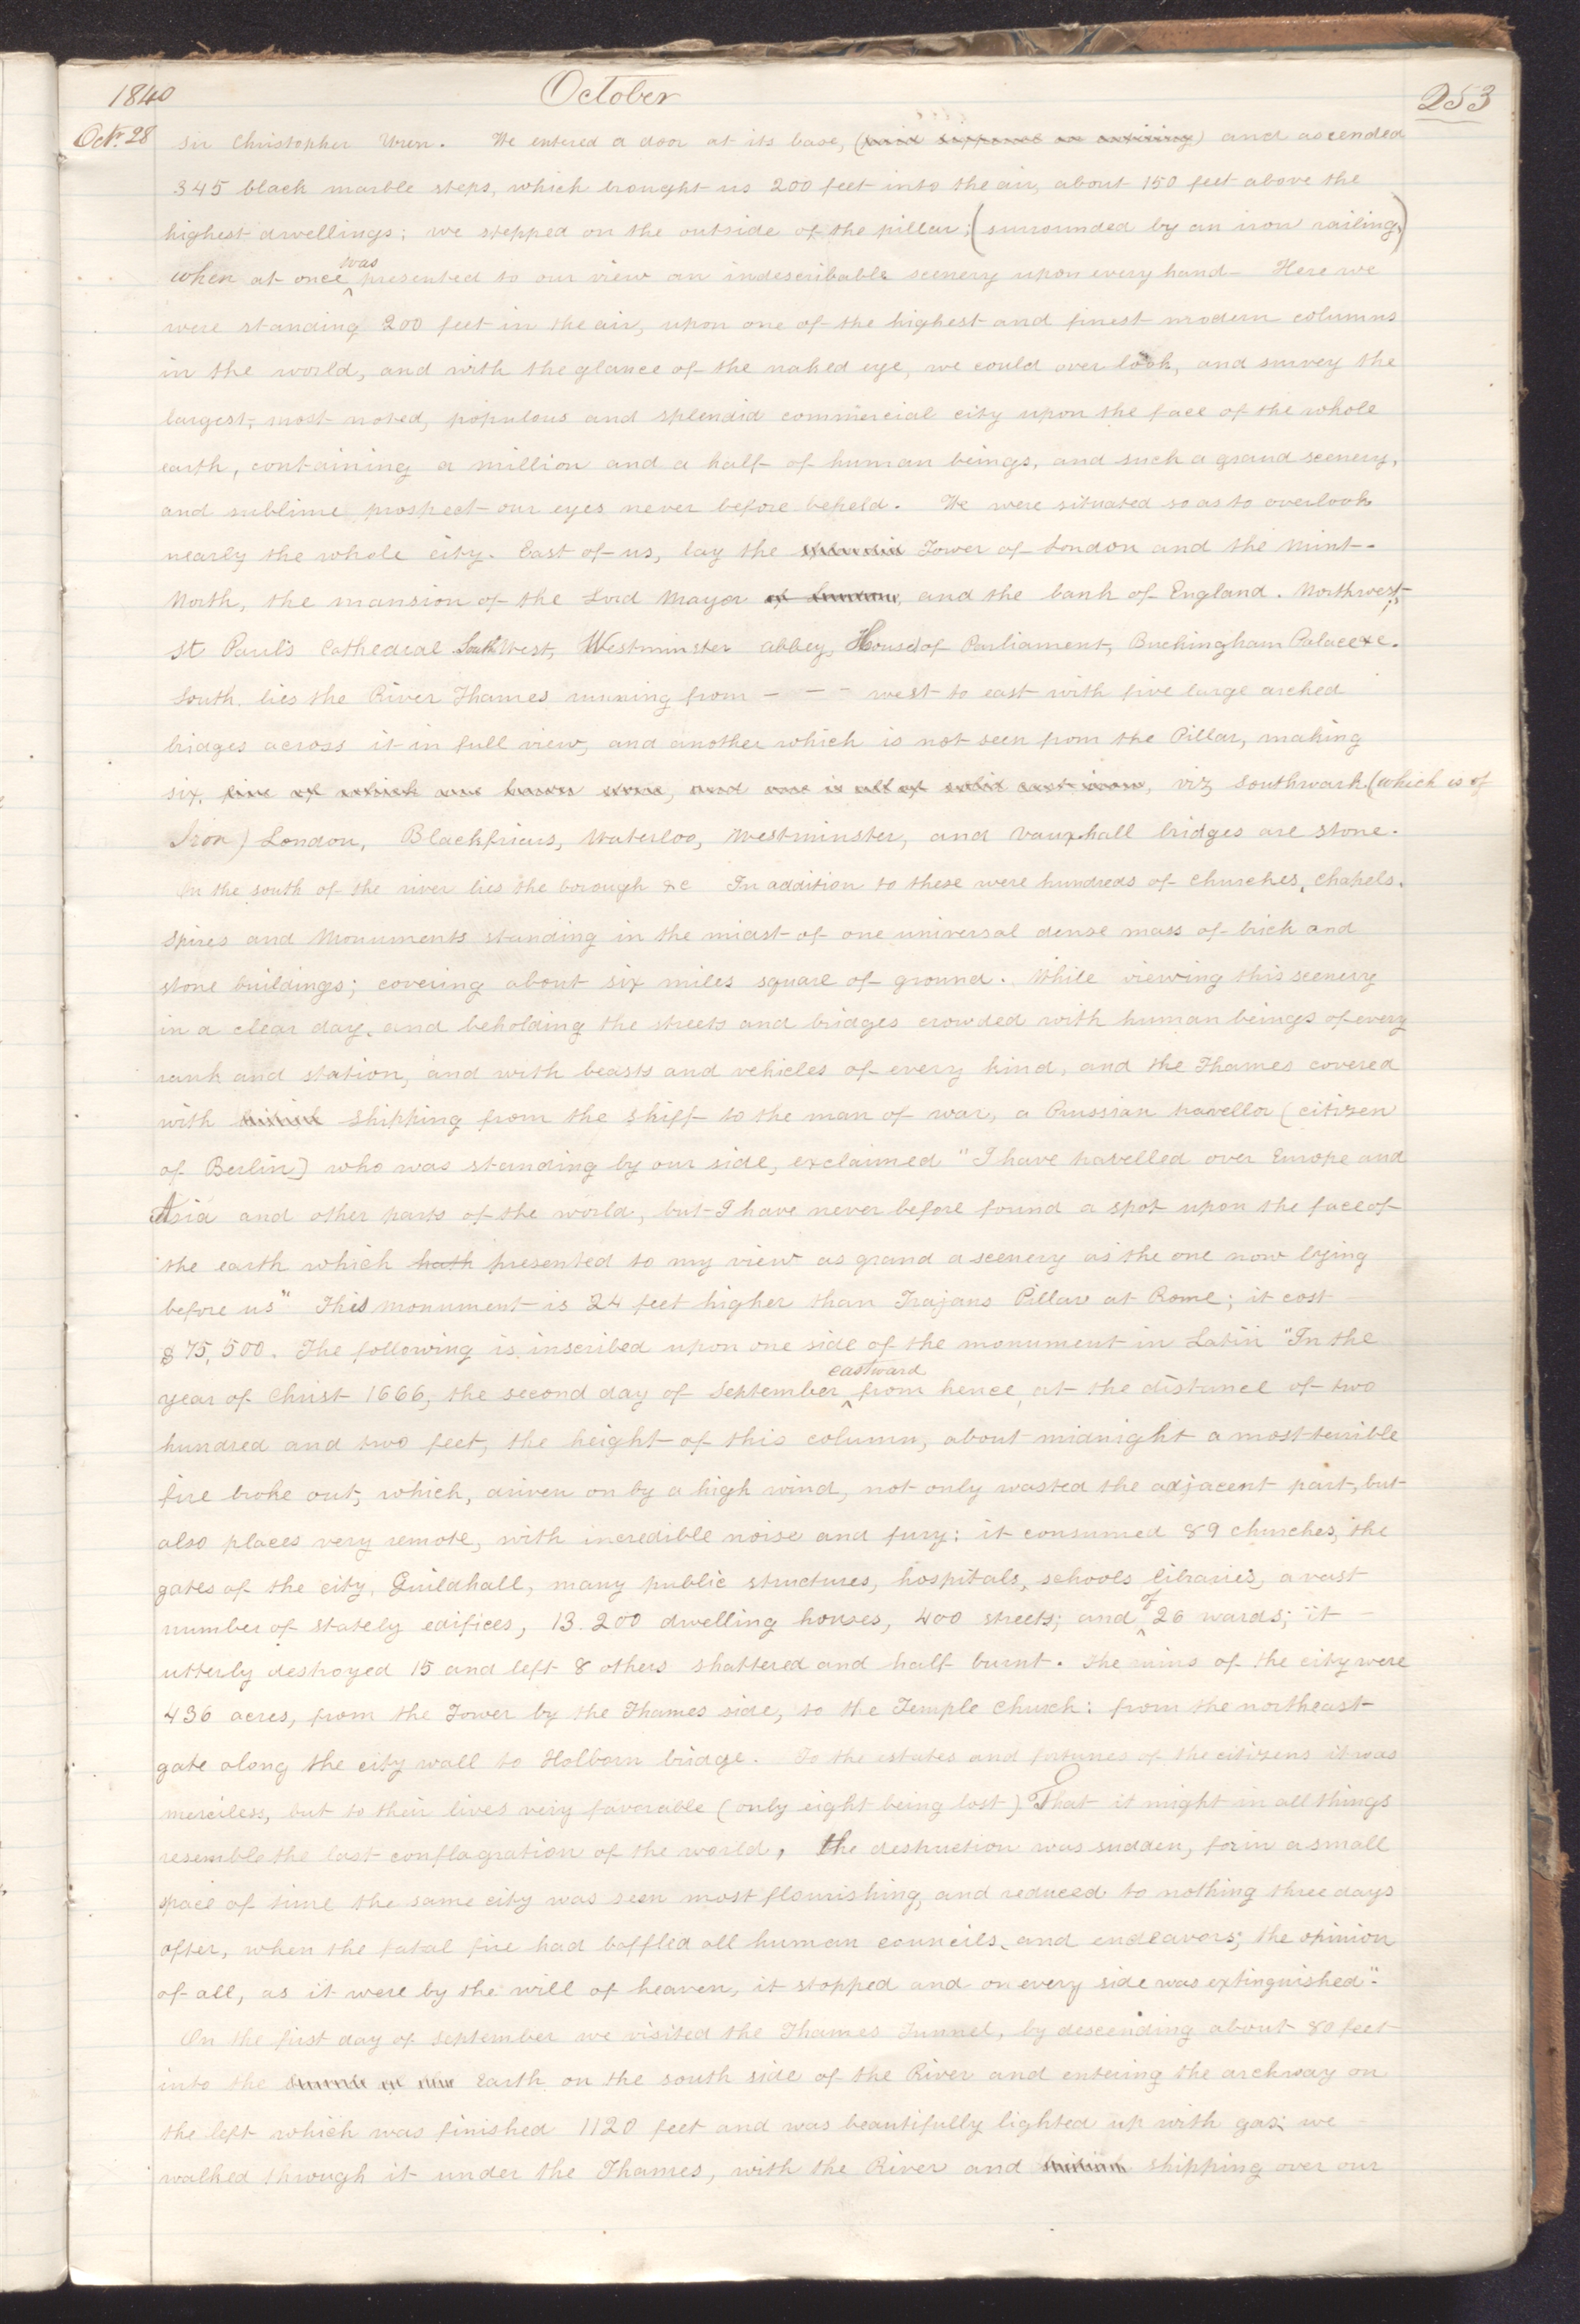 1840
October
253
Octr. 28
sir Christopher Wren. We entered a door at its base, () and ascended
345 black marble steps, which brought us 200 feet into the air, about 150 feet above the
highest dwellings; we stepped on the outside of the pillar; (surrounded by an iron railing,)
when at once was presented to our view an indescribable scenery upon every hand— Here we
were standing 200 feet in the air, upon one of the highest and finest modern columns
in the world, and with the glance of the naked eye, we could over look, and survey the
largest, most noted, populous and splendid commercial city upon the face of the whole
earth, containing a million and a half of human beings, and such a grand scenery,
and sublime prospect our eyes never before beheld. We were situated so as to overlook
nearly the whole city. East of us, lay the splendid Tower of London and the Mint.
North, the mansion of the Lord Mayor of London, and the bank of England. Northwest,
St Paul's Cathedral South West, Westminster abbey, House of Parliament, Buckingham Palace &c.
South, lies the River Thames running from - - - west to east with five large arched
bridges across it in full view, and another which is not seen from the Pillar, making
six. five of which are hewn stone, and one is all of solid cast iron, viz Southwark (which is of
Iron) London, Blackfriars, Waterloo, Westminster, and Vauxhall bridges are stone.
On the south of the river lies the borough &c In addition to these were hundreds of churches, chapels.
Spires and Monuments standing in the midst of one universal dense mass of brick and
stone buildings; covering about six miles square of ground. While viewing this scenery
in a clear day, and beholding the streets and bridges crowded with human beings of every
rank and station, and with beasts and vehicles of every kind, and the Thames covered
with shipping from the skiff to the man of war, a Prussian traveller (citizen
of Berlin) who was standing by our side, exclaimed "I have travelled over Europe and
Asia and other parts of the world, but I have never before found a spot upon the face of
the earth which hath presented to my view as grand a scenery as the one now lying
before us" This monument is 24 feet higher than Trajans Pillar at Rome; it cost
$75,500. The following is inscribed upon one side of the monument in Latin "In the
year of Christ 1666, the second day of September, eastward from hence, at the distance of two
hundred and two feet, the height of this column, about midnight a most terrible
fire broke out, which, driven on by a high wind, not only wasted the adjacent part, but
also places very remote, with incredible noise and fury: it consumed 89 churches, the
gates of the city, Guildhall, many public structures, hospitals, schools libraries, a vast
number of stately edifices, 13.200 dwelling houses, 400 streets; and of 26 wards; it
utterly destroyed 15 and left 8 others shattered and half burnt. The ruins of the city were
436 acres, from the Tower by the Thames side, to the Temple Church: from the northeast
gate along the city wall to Holborn bridge. To the estates and fortunes of the citizens it was
merciless, but to their lives very favorable (only eight being lost) That it might in all things
resemble the last conflagration of the world, the destruction was sudden, for in a small
space of time the same city was seen most flourishing, and reduced to nothing three days
after, when the fatal fire had baffled all human councils, and endeavors; the opinion
of all, as it were by the will of heaven, it stopped and on every side was extinguished".
On the first day of September we visited the Thames Tunnel, by descending about 80 feet
into the Earth on the south side of the River and entering the archway on
the left which was finished 1120 feet and was beautifully lighted up with gas; we
walked through it under the Thames, with the River and shipping over our